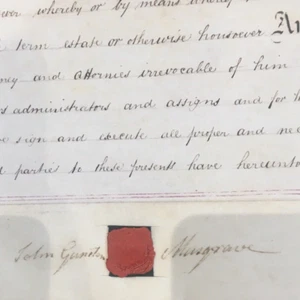 ever whereby or by means whereof
term estate or otherwise howsoever And
ney and attornies irrevocable of him
rs administrators and assigns and for
sign and execute all proper and nec
d parties to these presents have hereunto
John Musgrave